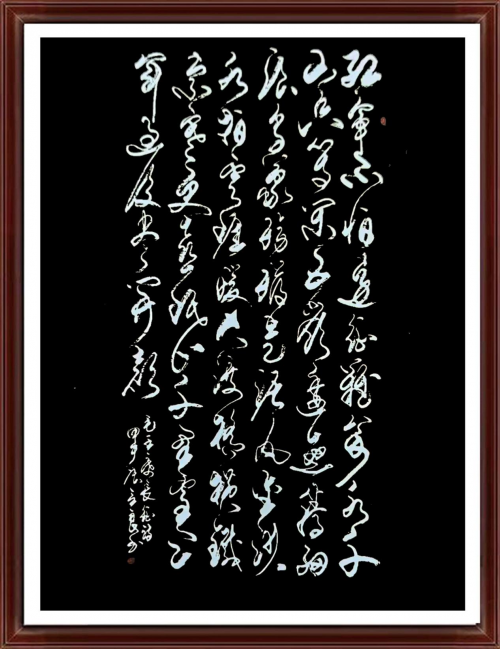 紅軍不怕遠征難萬水千
山只等閒五嶺逶迤騰細
浪烏蒙磅礴走泥丸金沙
水拍雲崖暖大渡橋橫鐵
索寒更喜岷山千里雪三
軍過後盡開顏
毛主席長征詩